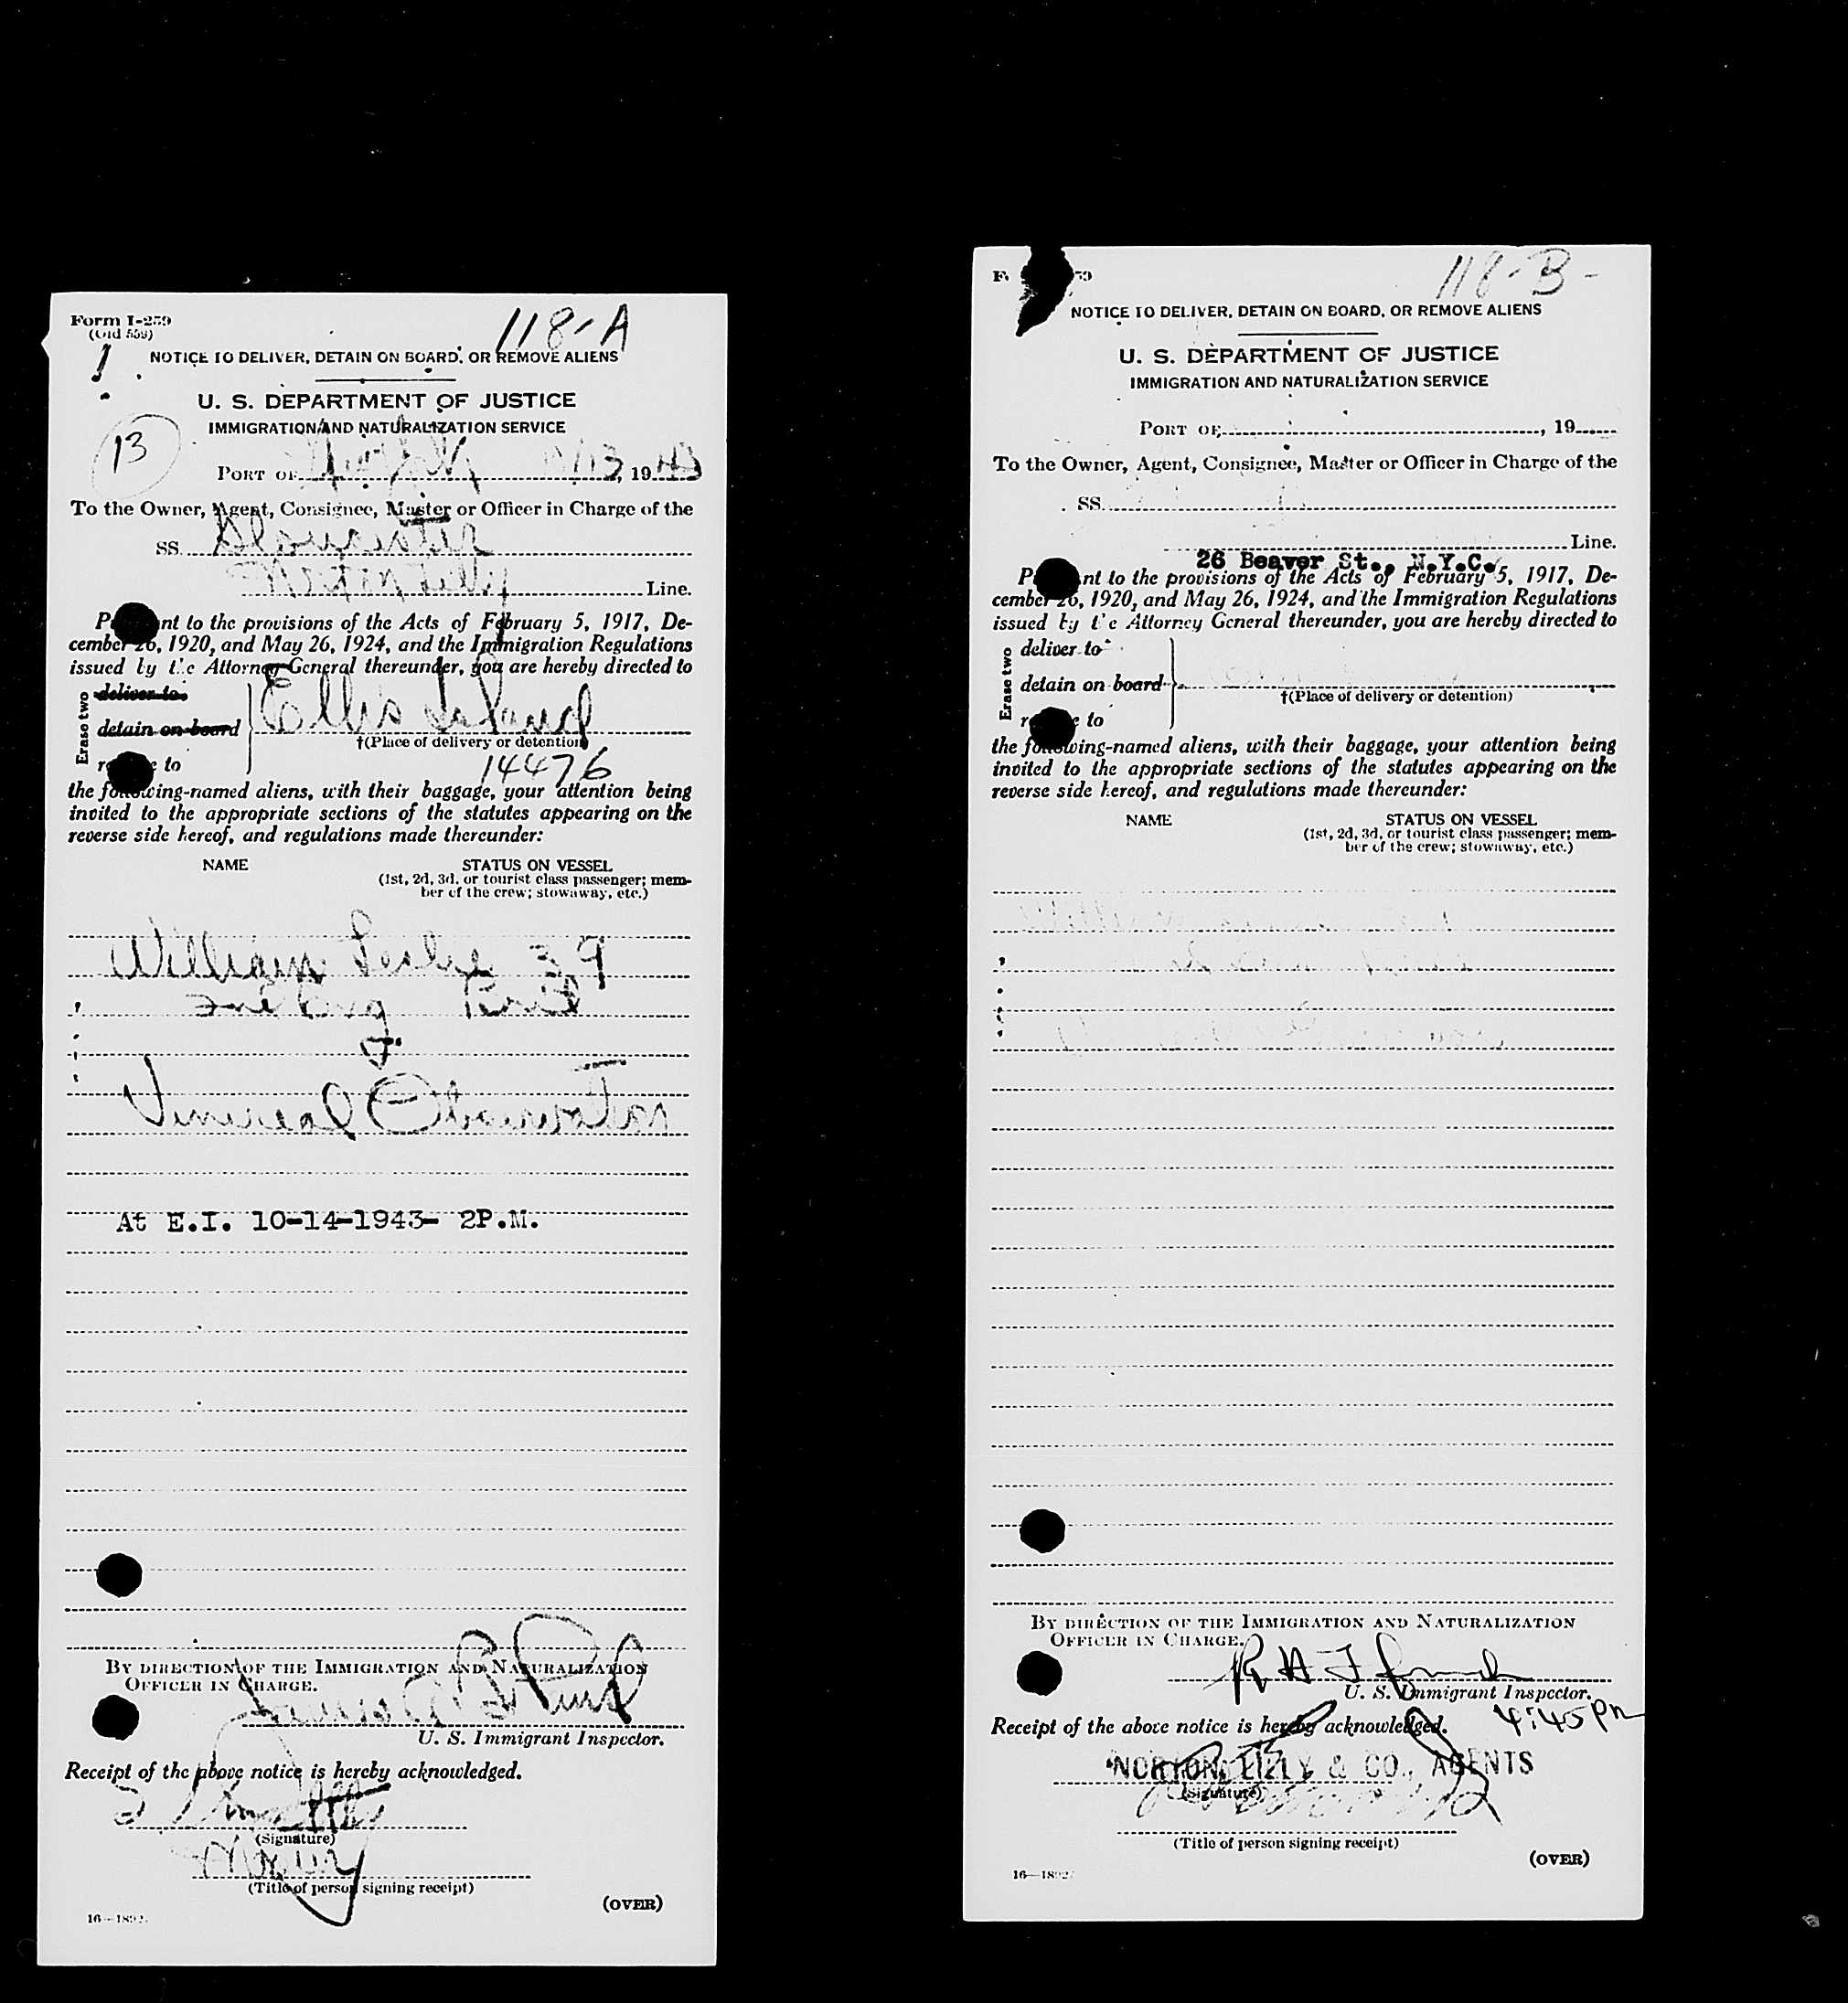 118-A
Form I-259
(Old 559)
NOTICE TO DELIVER, DETAIN ON BOARD, OR REMOVE ALIENS
U. S. DEPARTMENT OF JUSTICE
IMMIGRATION AND NATURALIZATION SERVICE
13
PORT OF New York 10/13, 1943
To the Owner, Agent, Consignee, Master or Officer in Charge of the
SS. Gloucester
Norton Lilly Line.
nt to the provisions of the Acts of February 5, 1917, De-
cember 26, 1920, and May 26, 1924, and the Immigration Regulations
issued by the Attorney General thereunder, you are hereby directed to
Erase two
deliver to
detain on board
to
Ellis Island
†(Place of delivery or detention)
14476
the following-named aliens, with their baggage, your attention being
invited to the appropriate sections of the statutes appearing on the
reverse side hereof, and regulations made thereunder:
NAME STATUS ON VESSEL
(1st, 2d, 3d, or tourist class passenger; mem-
ber of the crew; stowaway, etc.)
William Leslie 39
Venereal Observation
At E.I. 10-14-1943- 2P.M.
BY DIRECTION OF THE IMMIGRATION AND NATURALIZATION
OFFICER IN CHARGE.
U. S. Immigrant Inspector.
Receipt of the above notice is hereby acknowledged.
(Signature)
(Title of person signing receipt)
(OVER)
118-B-
NOTICE TO DELIVER, DETAIN ON BOARD, OR REMOVE ALIENS
U. S. DEPARTMENT OF JUSTICE
IMMIGRATION AND NATURALIZATION SERVICE
PORT OF , 19
To the Owner, Agent, Consignee, Master or Officer in Charge of the
SS.
Line.
26 Beaver St., N.Y.C.
nt to the provisions of the Acts of February 5, 1917, De-
cember 26, 1920, and May 26, 1924, and the Immigration Regulations
issued by the Attorney General thereunder, you are hereby directed to
Erase two
deliver to
detain on board
to
†(Place of delivery or detention)
the following-named aliens, with their baggage, your attention being
invited to the appropriate sections of the statutes appearing on the
reverse side hereof, and regulations made thereunder:
NAME STATUS ON VESSEL
(1st, 2d, 3d, or tourist class passenger; mem-
ber of the crew; stowaway, etc.)
BY DIRECTION OF THE IMMIGRATION AND NATURALIZATION
OFFICER IN CHARGE.
U. S. Immigrant Inspector.
Receipt of the above notice is hereby acknowledged. 4:45 PM
NORTON, LILLY & CO., AGENTS
(Signature)
(Title of person signing receipt)
(OVER)